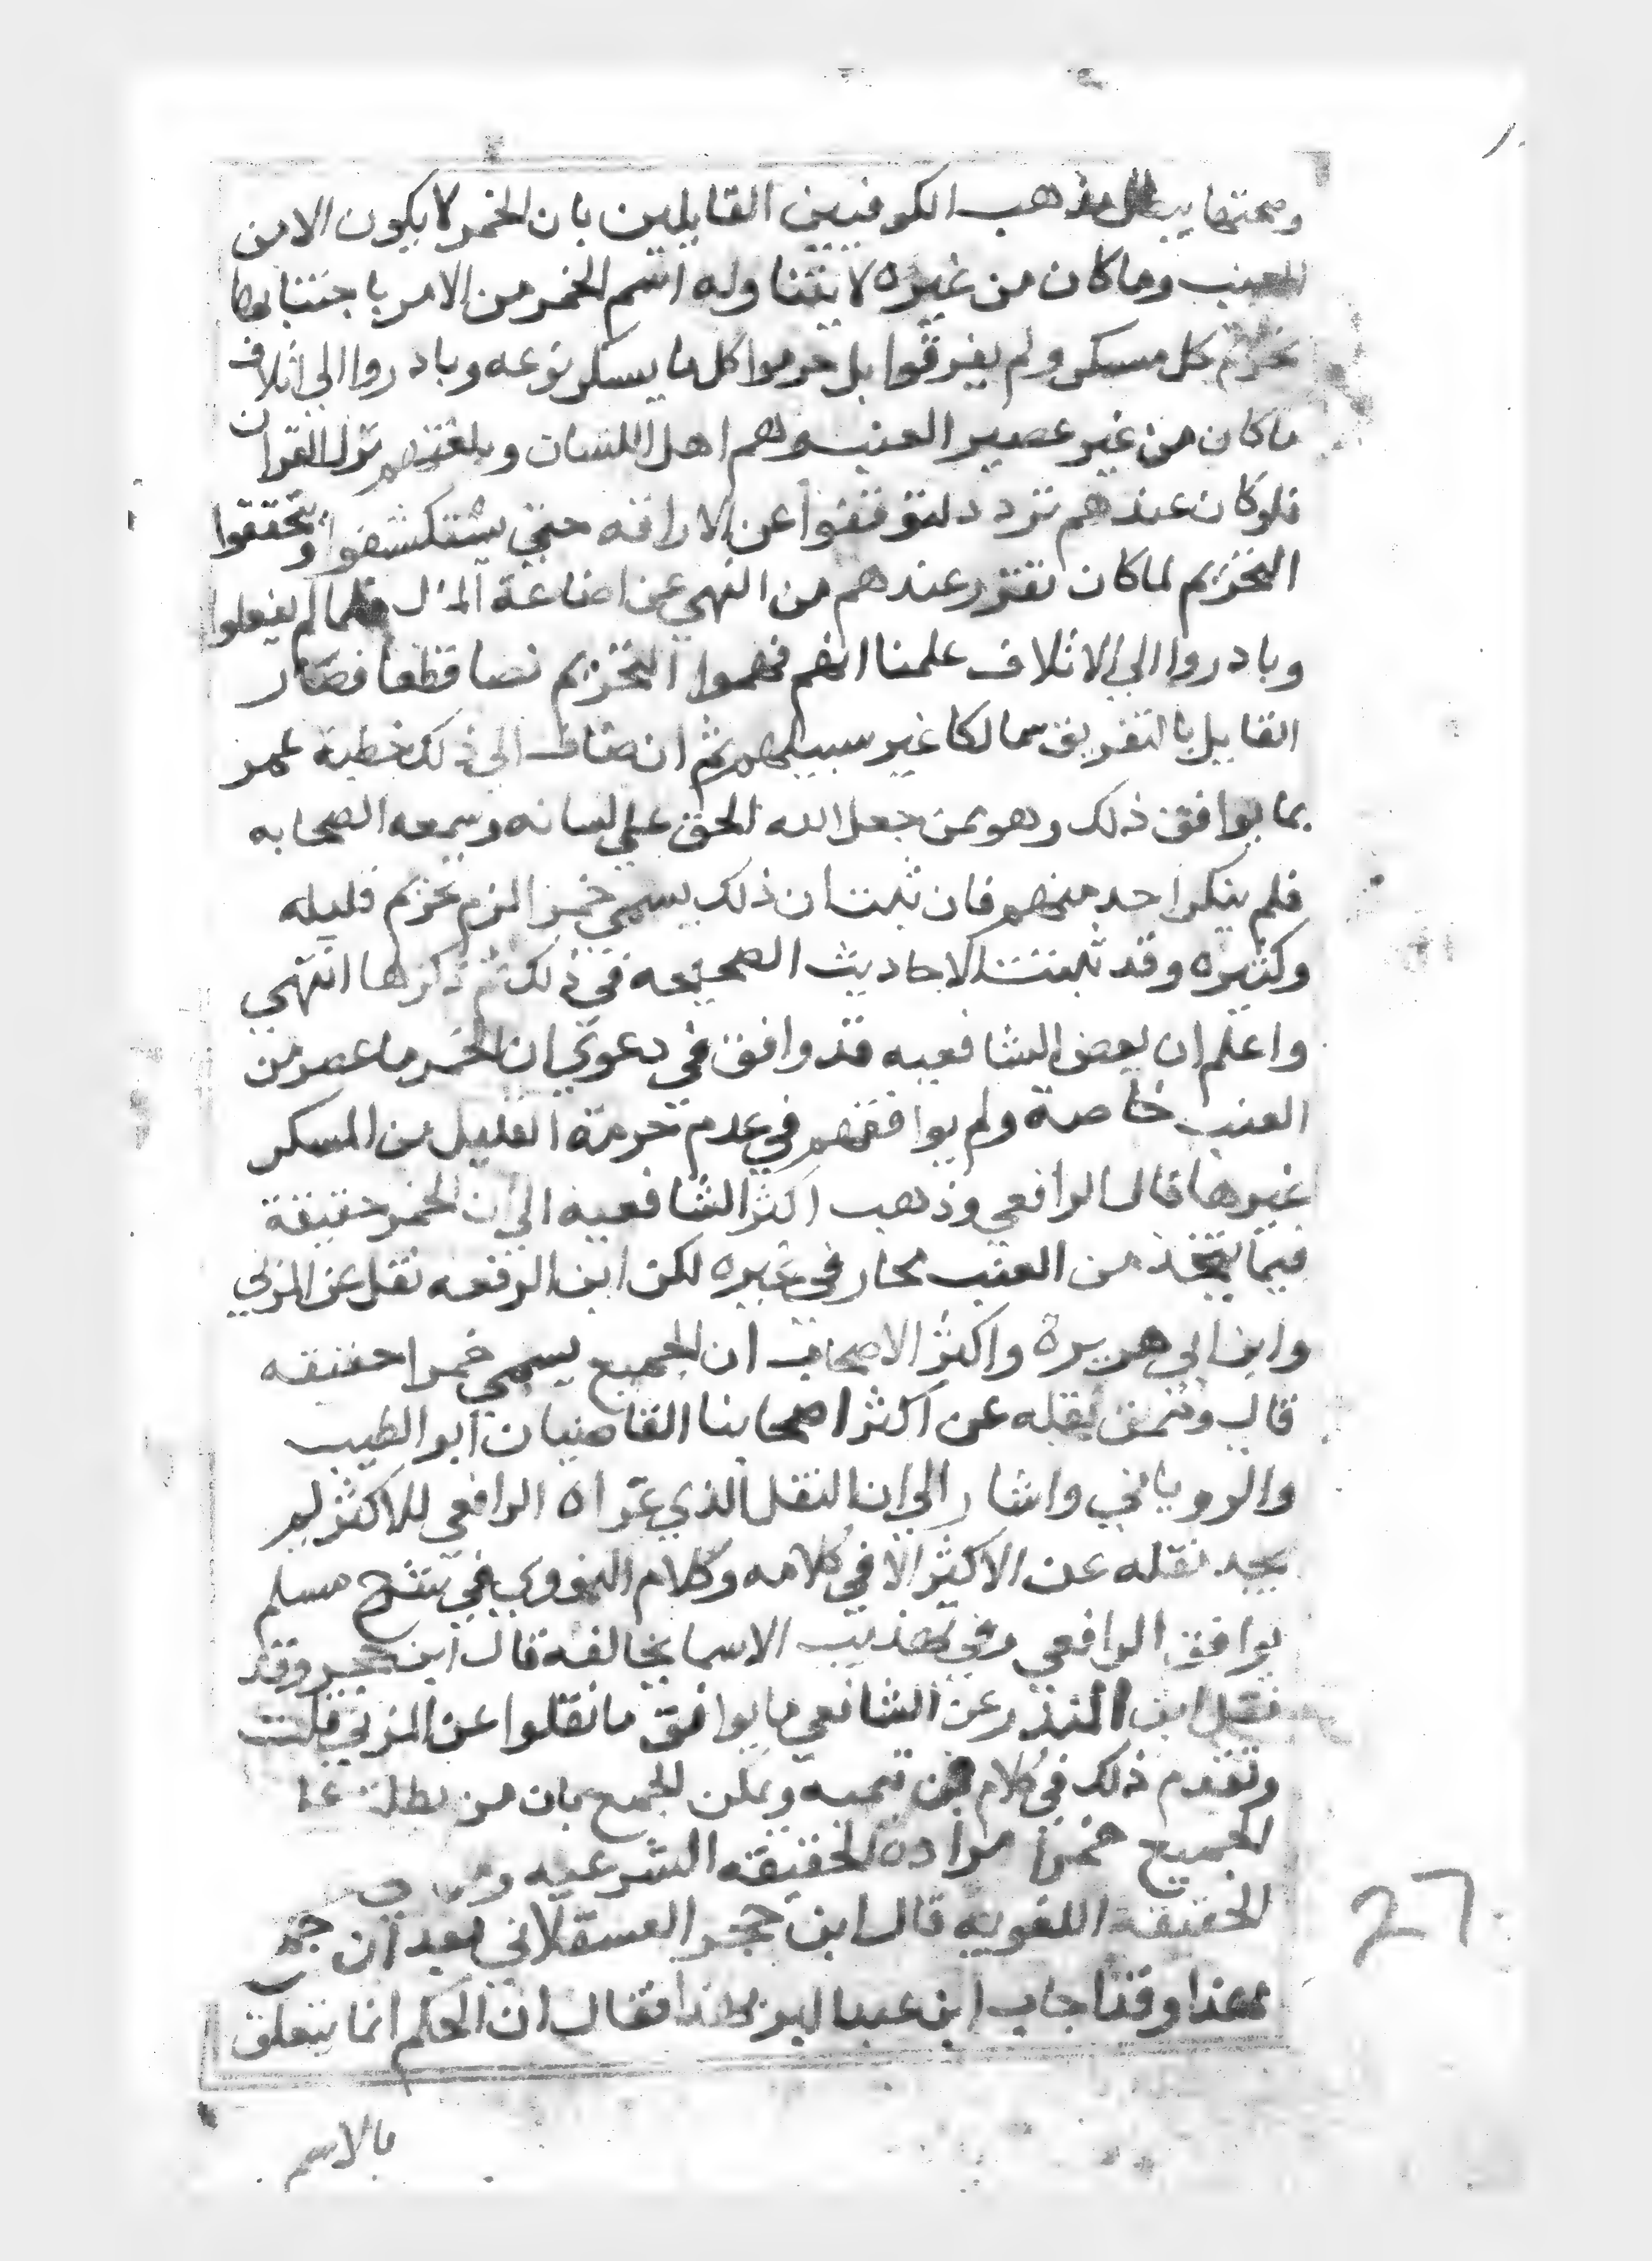 وصحتها يبطل مذهب الكوفيين القايلين بان الخمر لا يكون الا من
العنب وما كان من غيره لا يتناوله اسم الخمر من الامر باجتنابها
تحريم كل مسكر ولم يفرقوا بل حرموا كل ما يسكر نوعه وبادروا الى اتلاف
ما كان من غير عصير العنب وهم اهل اللسان وبلغتهم نزل القران
فلو كان عندهم تردد لتوقفوا عن الاراقه حتي يستكشفوا ويتحققوا
التحريم لما كان تقرر عندهم من النهي عن اضاعة المال فلما لم يفعلوا
وبادروا الي الاتلاف علمنا انهم فهموا التحريم نصا قطعا فصار
القايل بالتفريق سالكا غير سبيلهم ثم انضاف الي ذلك خطبة عمر
بما يوافق ذلك وهو ممن جعل الله الحق علي لسانه وسمعه الصحابه
فلم ينكر احد منهم فان ثبت ان ذلك يسمي خمرا لزم تحريم قليله
وكثيره وقد ثبتت الاحاديث الصحيحه في ذلك ثم ذكرها انتهي
واعلم ان بعض الشافعيه قد وافق في دعوي ان الخمر ما عصر من
العنب خاصة ولم يوافقهم في عدم حرمة القليل من المسكر
غيرها قال الرافعي وذهب اكثر الشافعيه الي ان الخمر حقيقة
فيما يتخذ من العنب مجاز في غيره لكن ابن الرفعه نقل عن المزني
وابن ابي هريرة واكثر الاصحاب ان الجميع يسمي خمرا حقيقه
قال وممن نقله عن اكثر اصحابنا القاضيان ابو الطيب
والروياني واشار الي ان النقل الذي عزاه الرافعي للاكثر لم
يجد نقله عن الاكثر الا في كلامه وكلام النووي في شرح مسلم
يوافق الرافعي وفي تهذيب الاسما يخالفه قال ابن حجر وقد
نقل ابن المنذر عن الشافعي ما يوافق ما نقلوا عن المزني قلت
وتقدم ذلك في كلام ابن تيميه ويمكن الجمع بان من
الجميع خمرا مراده الحقيقه الشرعيه
الحقيقة اللغويه قال ابن حجر العسقلاني بعد ان جمع
بهذا وقد اجاب ابن عبد البر بهذا فقال ان الحكم انما يتعلق
بالاسم
27